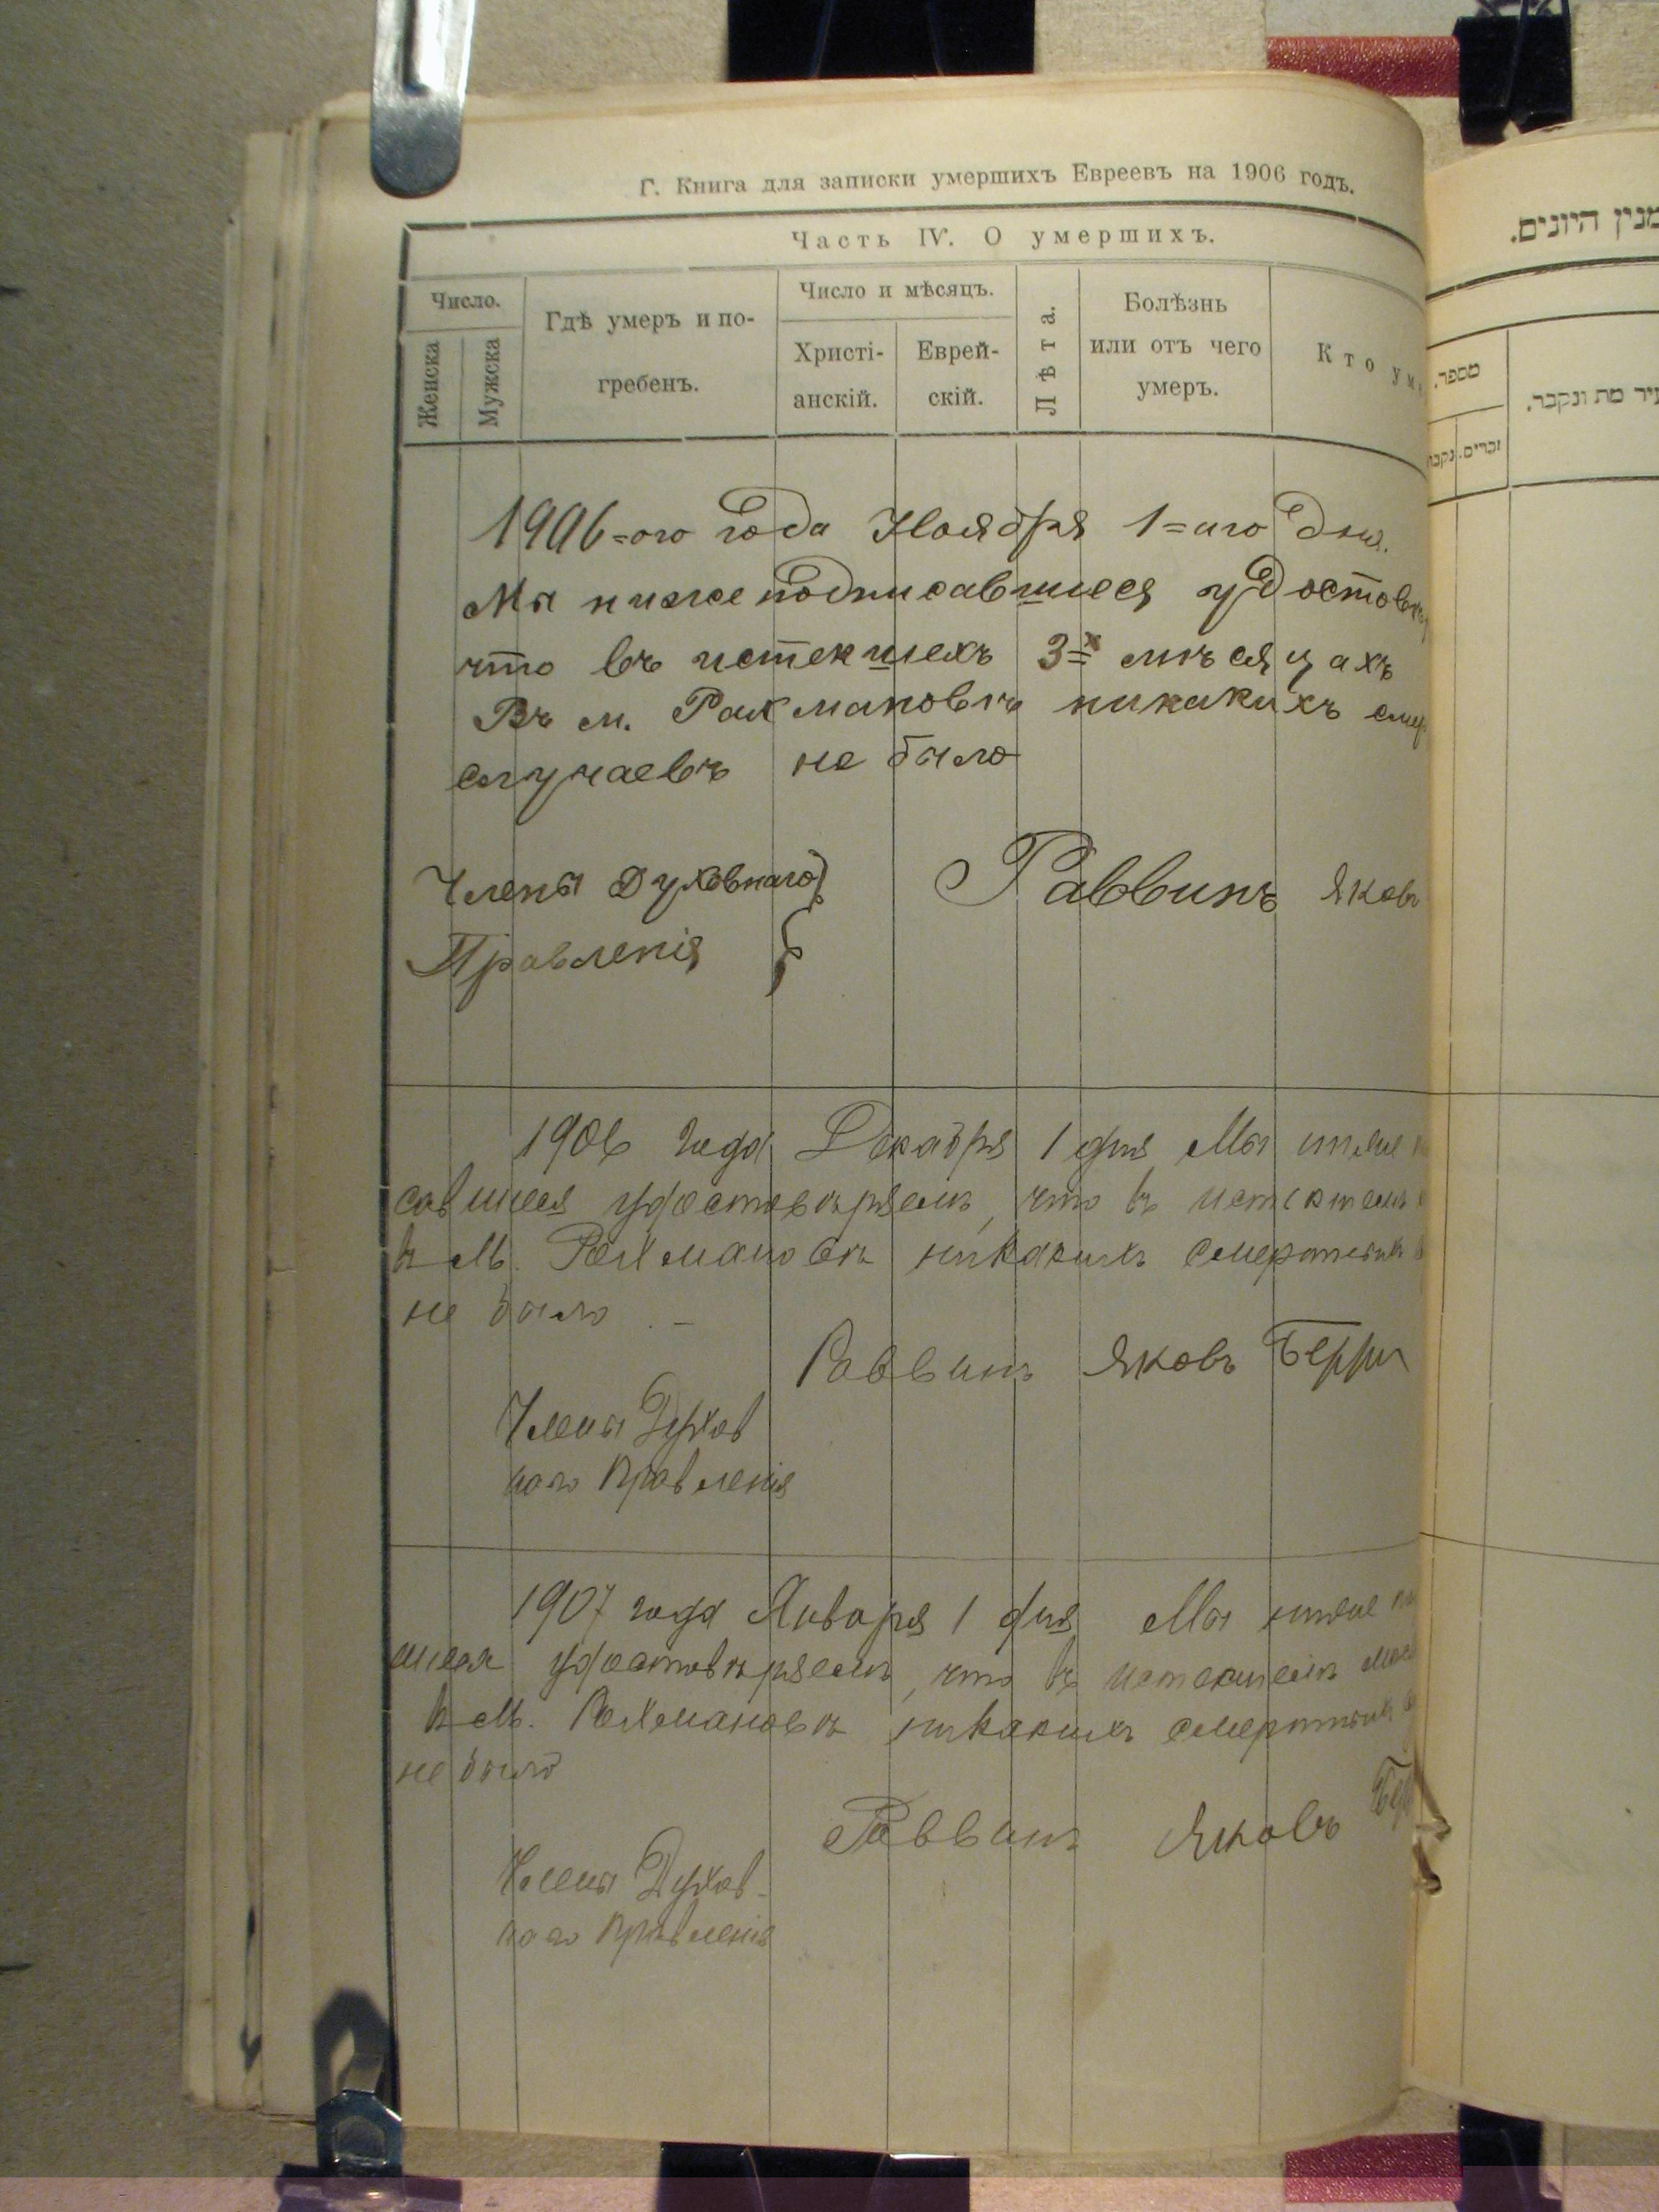 Г. Книга для записки умершихъ Евреевъ на 1906 годъ.
Часть IV. О умершихъ.
Число.
Женска
Мужска
Гдѣ умеръ и по-
гребенъ.
Число и мѣсяцъ.
Христі-
анскій.
Еврей-
скій.
Лѣта.
Болѣзнь
или отъ чего
умеръ.
Кто ум
1906=ого года Ноября 1=аго дня.
Мы нижеподписавшиеся удостовѣр
что въ истекшехъ 3=х мѣсяцахъ
Въ м. Рахмановкѣ никакихъ смер
случаевъ не было
Члены Духовнаго
Правленія
Раввинъ Яковъ
1906 года Декабря 1 дня Мы ниже
савшиеся удостовѣряемъ, что въ истекшемъ
в м. Рахмановкѣ никакихъ смертныхъ
не было . –
Раввинъ Яковъ Берри
Члены Духов
наго Правленія
1907 года Января 1 дня Мы ниже
шиеся удостовѣряемъ, что въ истекшемъ
в м. Рахмановкѣ никакихъ смертныхъ
не было
Раввинъ Яковъ Бер
Члены Духов-
наго Правленія
מנין היונים.
מספר.
זכרים.
נקבו
עיר מת ונקבר.